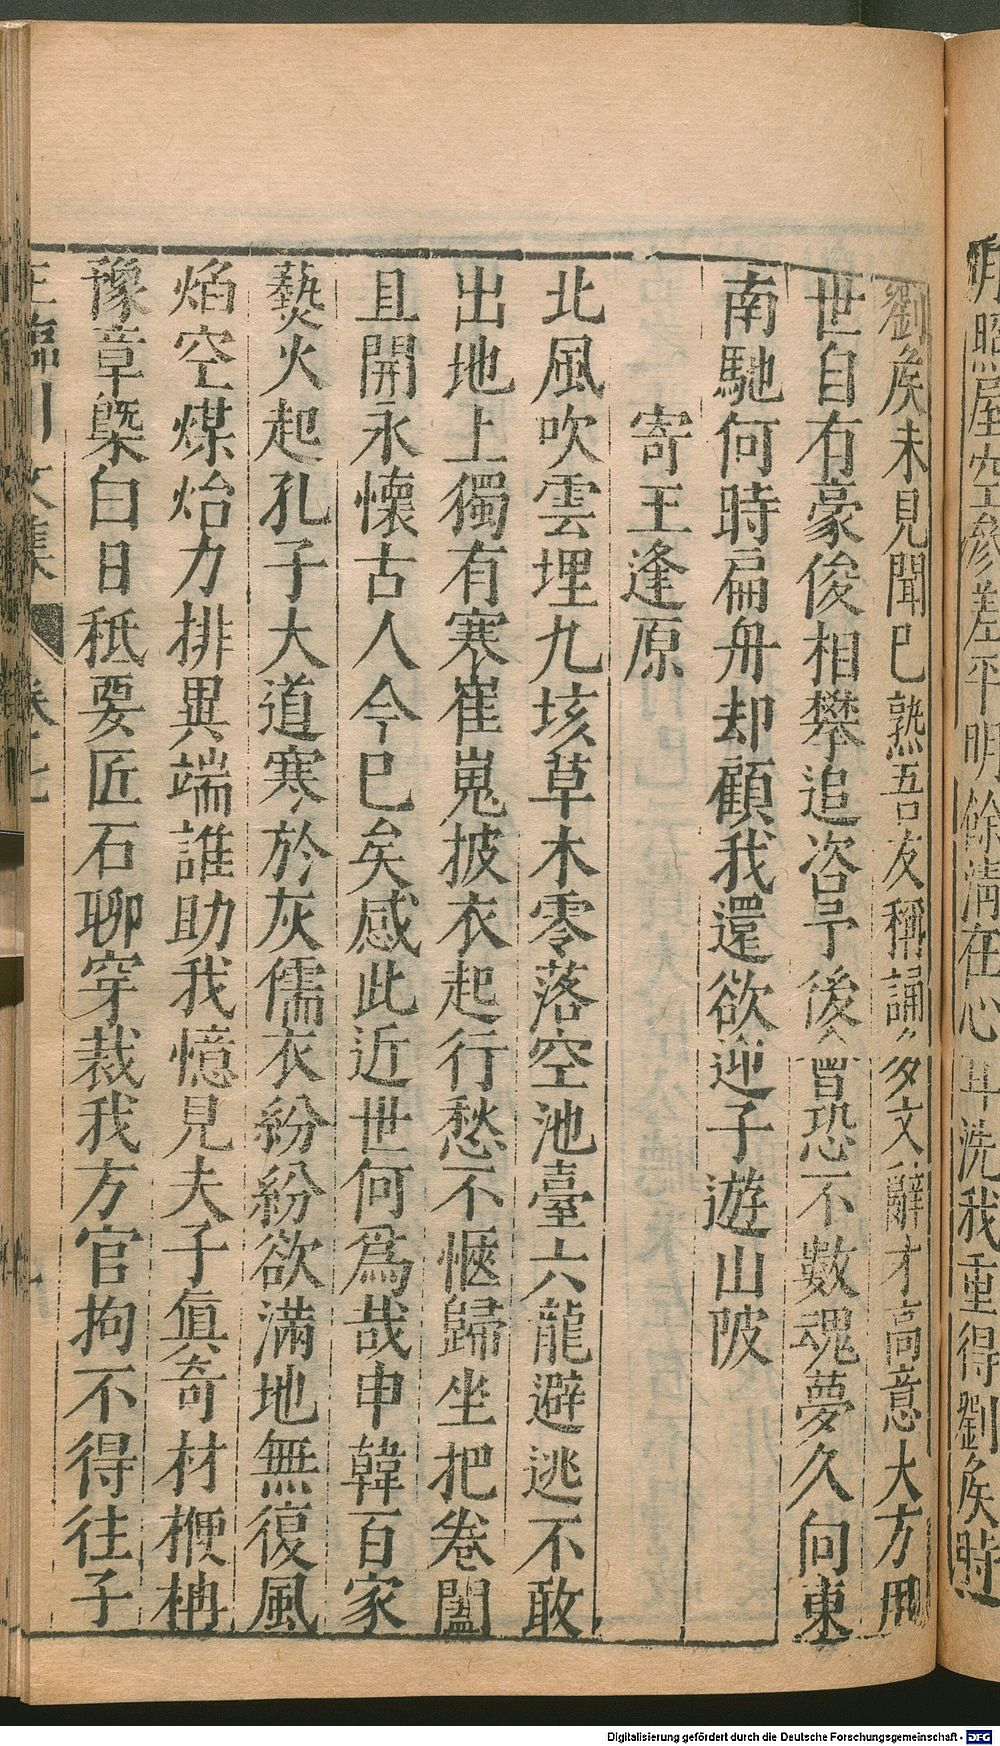 月照屋空參差平明餘清在心耳洗我重得劉矦時
劉矦未見聞巳熟吾友稱誦多文辭才高意大方用
世自有豪俊相攀追咨予後會恐不數魂夢久向東
南馳何時扁舟却顧我還欲迎子遊山陂
寄王逢原
北風吹雲埋九垓草木零落空池臺六龍避逃不敢
出地上獨有寒崔嵬披衣起行愁不愜歸坐把卷闔
且開永懷古人今巳矣感此近世何爲哉申韓百家
爇火起孔子大道寒於灰儒衣紛紛欲滿地無復風
焰空煤炲力排異端誰助我憶見夫子眞奇材楩柟
豫章槩白日秪要匠石聊穿裁我方官拘不得往子
王臨川文集 卷
Digitalisierung gefördert durch die Deutsche Forschungsgemeinschaft - DFG